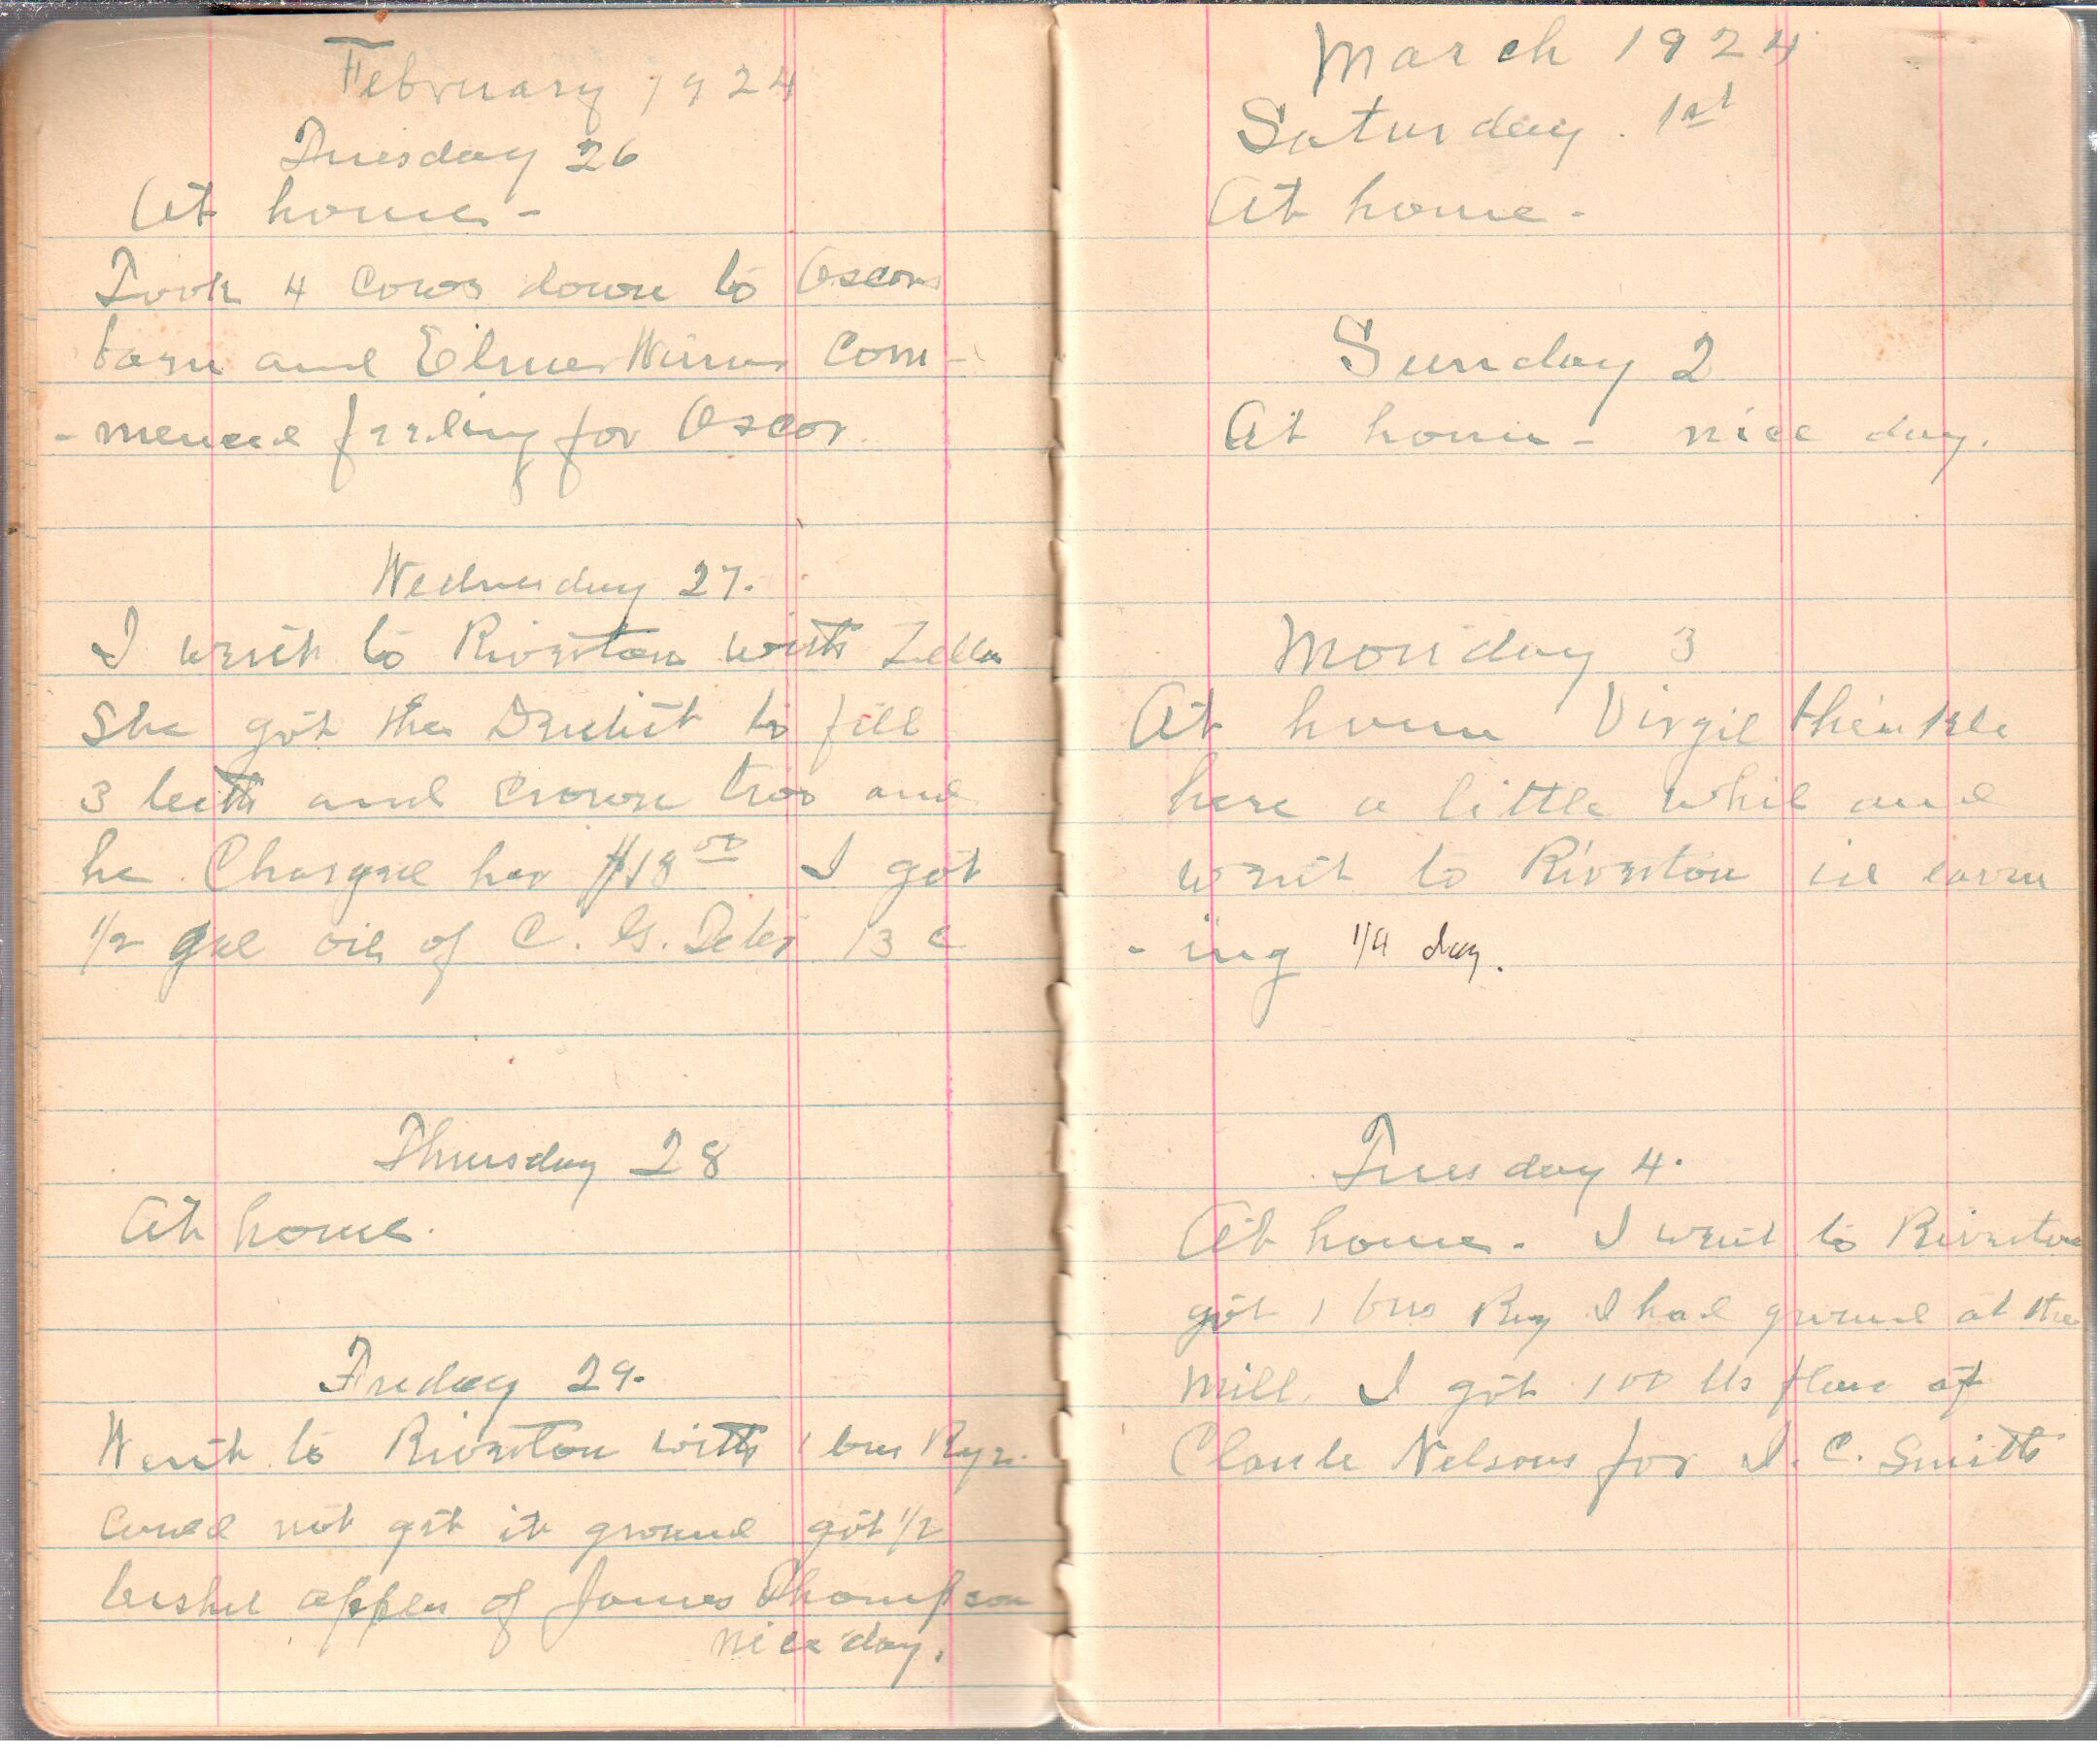 February 1924
Tuesday 26
At home -
Took 4 cows down to Oscors
barn and Elmer Com-
- menced feeding for Oscor.
Wednesday 27.
I went to Riverton with Zella
She got the Dentist to fill
3 teeth and crown two and
he Charged her $18 00 I got
1/2 gal oil of C. G. 13 c
Thursday 28
At home.
Friday 29.
Went to Riverton with 1 bus Rye.
Could not get it ground got 1/2
bushel apples of James Thompson
nice day.
March 1924
Saturday. 1st
At home -
Sunday 2
At home - nice day.
Monday 3
At home Virgil
here a little while and
went to Riverton in
- ing 1/4 day.
Tuesday 4.
At home. I went to Riverton
got 1 bus Ry I had ground at the
mill. I got 100 lbs flour of
Claude Nelsons for I. C. Smith